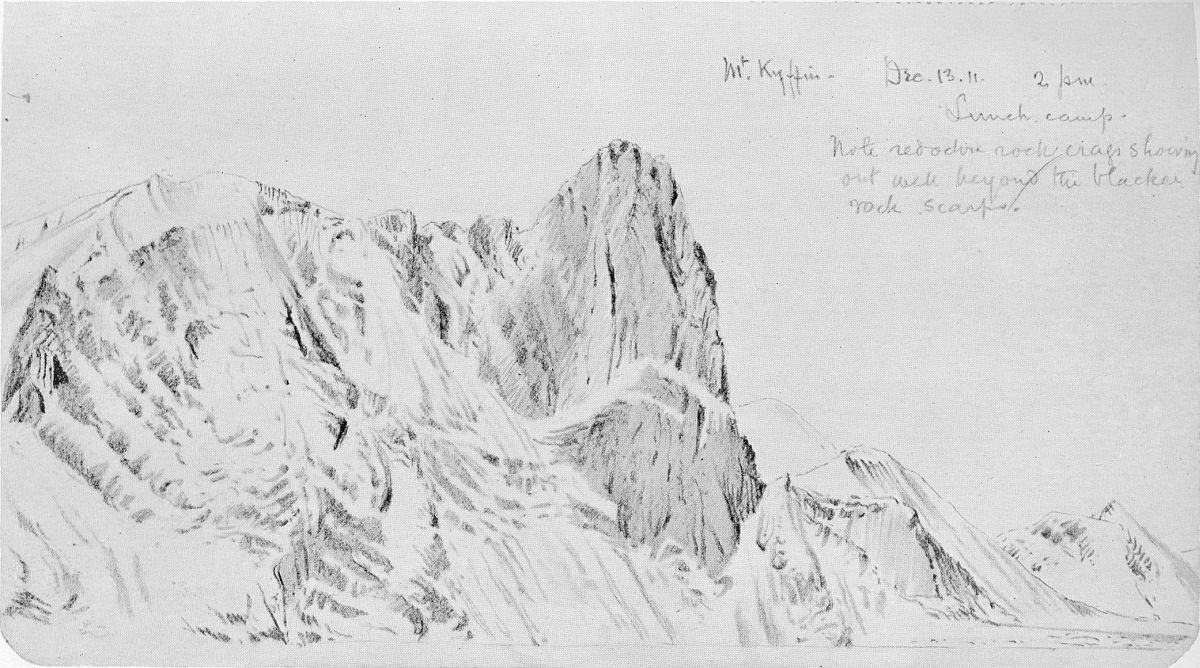 Mt. Kyffin - Dec. 13. 11. 2 pm.
Lunch camp -
Note red ochre rock crags showing
out well beyond the blacker
rock scarps.